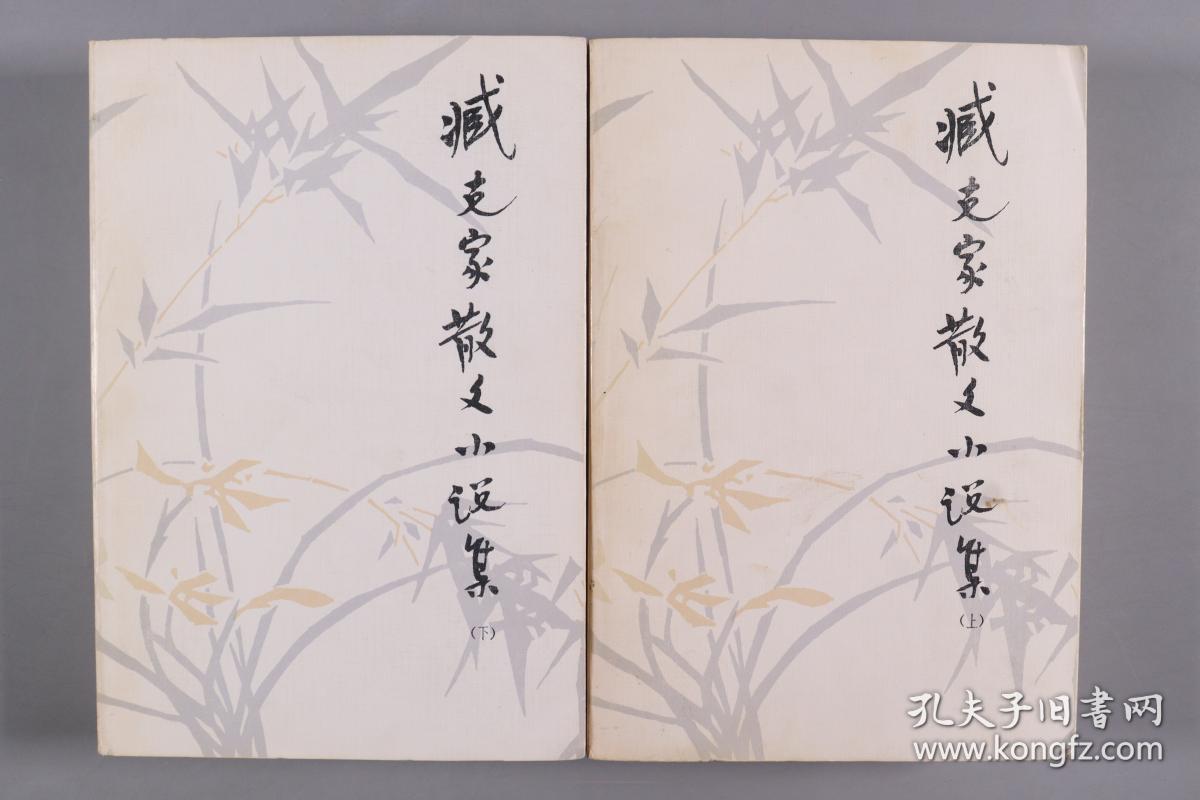 臧克家散文小说集
(下)
臧克家散文小说集
(上)
孔夫子旧書网
www.kongfz.com